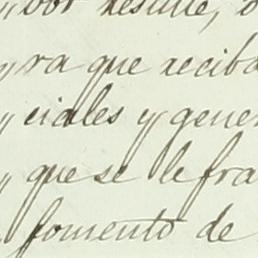 „ por
„ ra que reciba
„ ciales y gener
„ que se le fra
fomento de